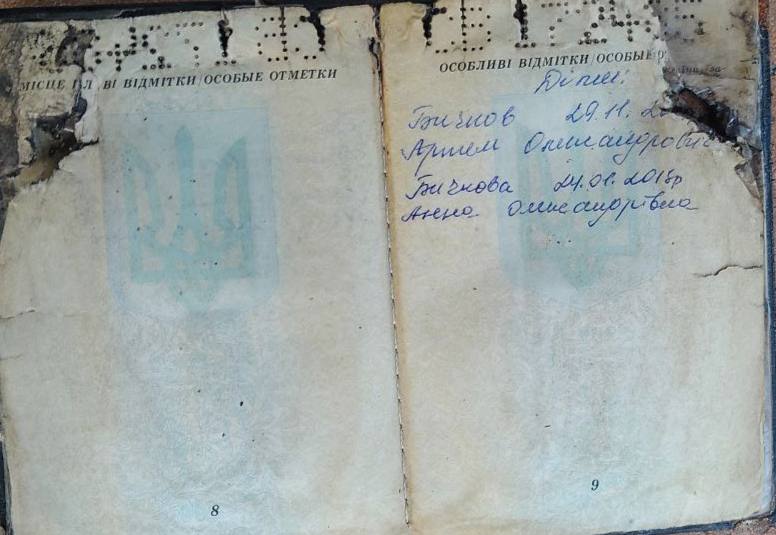 МІСЦЕ ВІДМІТКИ/ОСОБЫЕ ОТМЕТКИ
8
ОСОБЛИВІ ВІДМІТКИ/ОСОБЫЕ
Діти:
Бичков 29.11.
Артем Олександрович
Бичкова 24.01.2015р
Анна Олександрівна
9